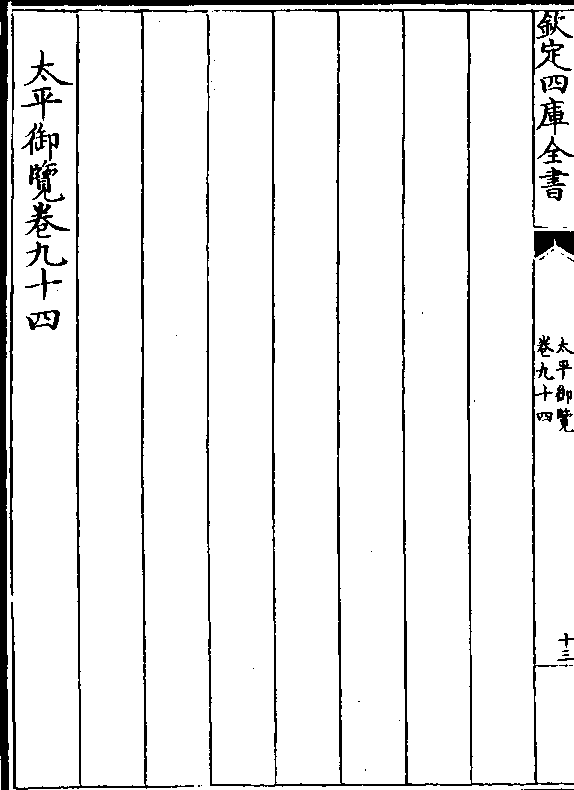 欽定四庫全書
太平御覽
卷九十四
十三
太平御覽卷九十四